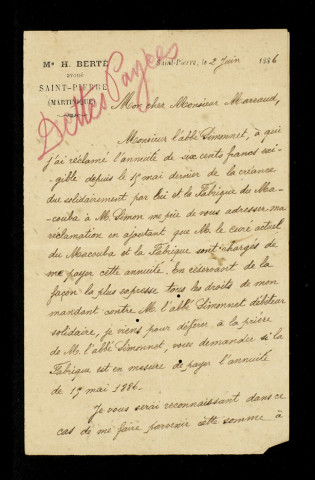 Me H. BERTÉ
AVOUÉ
SAINT-PIERRE
(MARTINIQUE)
Dettes Payées
Saint-Pierre, le 2 Juin 1886
Mon cher Monsieur Marraud,
Monsieur l'abbé Simonnet, à qui
j'ai réclamé l'annuité de six cents francs exi-
gible depuis le 15 mai dernier de la créance
due solidairement par lui et la Fabrique du Ma-
couba à M. Simon me prie de vous adresser ma
réclamation en ajoutant que M. le curé actuel
du Macouba et la Fabrique sont chargés de
me payer cette annuité. En réservant de la
façon la plus expresse tous les droits de mon
mandant contre M. l'abbé Simonnet débiteur
solidaire, je viens pour déférer à la prière
de M. l'abbé Simonnet, vous demander si la
Fabrique est en mesure de payer l'annuité
de 15 mai 1886.
Je vous serai reconnaissant dans ce
cas de me faire parvenir cette somme à